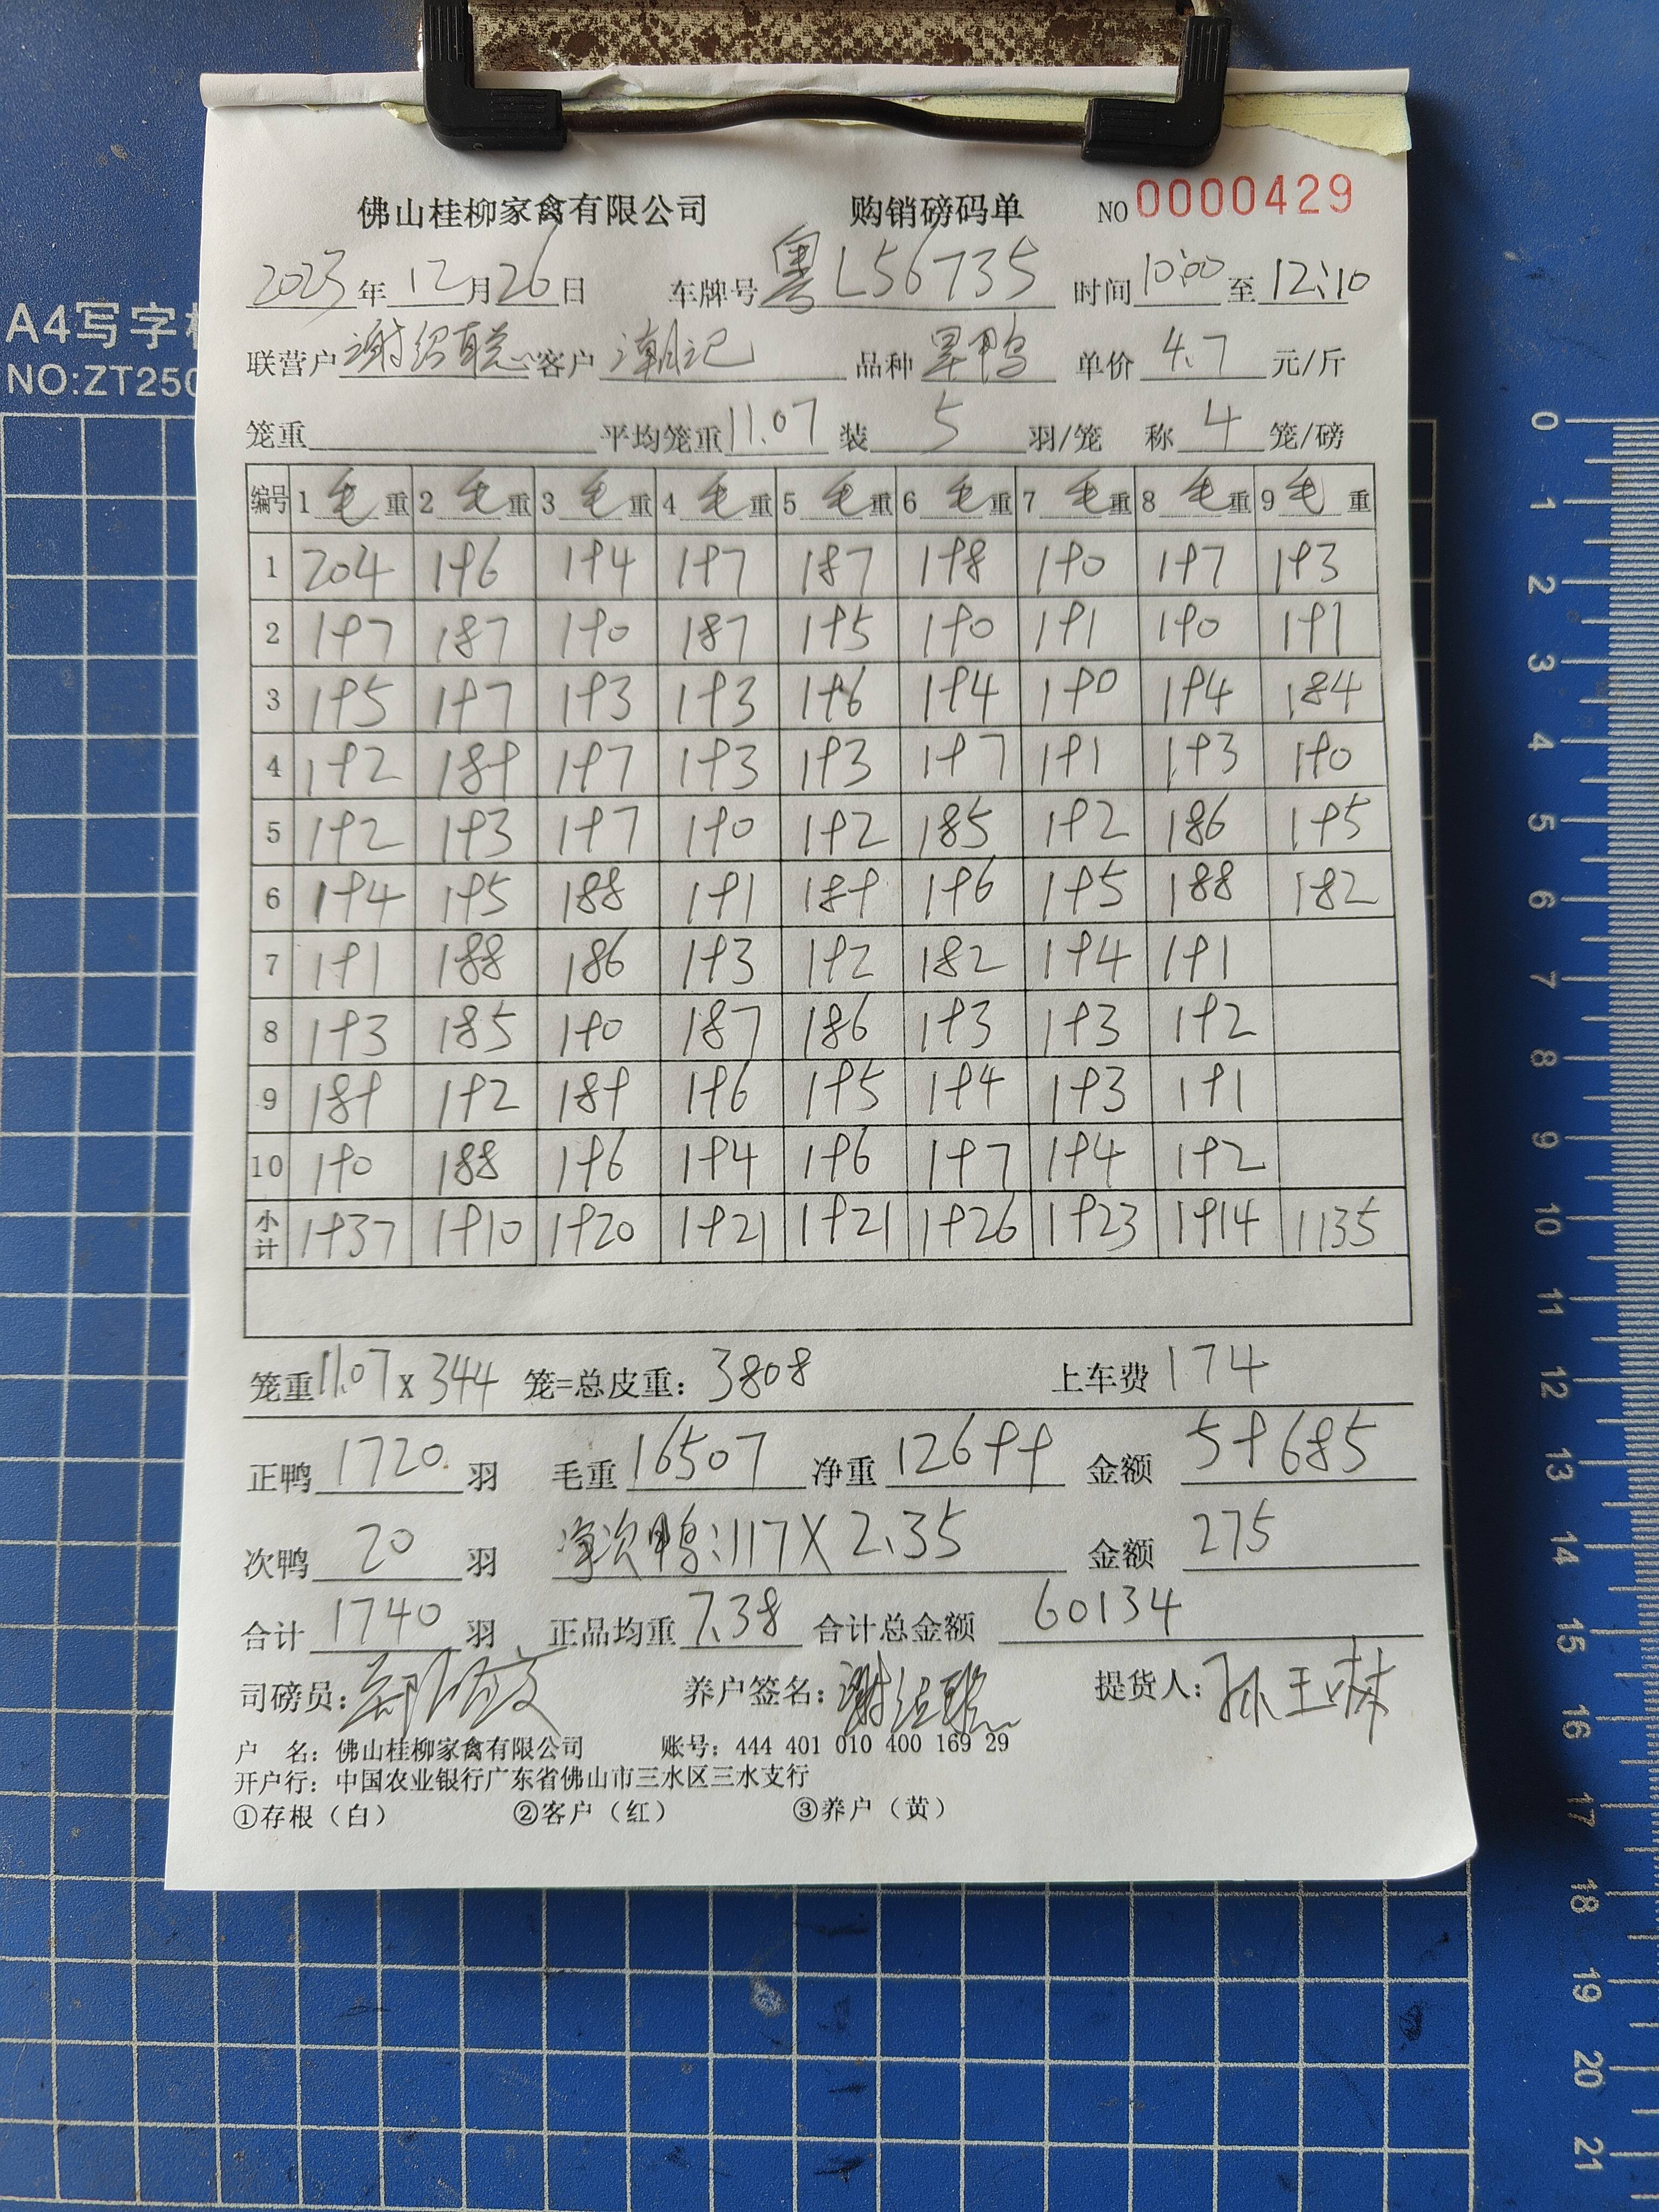 佛山桂柳家禽有限公司 购销磅码单 NO 0000429
2023年12月26日 车牌号 粤L56735 时间 10:00 至 12:10
A4写字
联营户 谢绍聪 客户 潮记 品种 旱鸭 单价 4.7 元/斤
NO:ZT250
笼重 平均笼重 11.07 装 5 羽/笼 称 4 笼/磅
编号 1 毛重 2 毛重 3 毛重 4 毛重 5 毛重 6 毛重 7 毛重 8 毛重 9 毛重
1 204 196 194 197 187 198 190 197 193
2 197 187 190 187 195 190 191 190 191
3 195 197 193 193 196 194 190 194 184
4 192 189 197 193 193 197 191 193 190
5 192 193 197 190 192 185 192 186 195
6 194 195 188 191 189 196 195 188 182
7 191 188 186 193 192 182 194 191
8 193 185 190 187 186 193 193 192
9 189 192 189 196 195 194 193 191
10 190 188 196 194 196 197 194 192
小计 1937 1910 1920 1921 1921 1926 1923 1914 1135
笼重 11.07 X 344 笼=总皮重: 3808 上车费 174
正鸭 1720 羽 毛重 16507 净重 12699 金额 59685
次鸭 20 羽 净次鸭:117X2.35 金额 275
合计 1740 羽 正品均重 7.38 合计总金额 60134
司磅员: 养户签名: 谢绍聪 提货人: 孙玉琳
户 名: 佛山桂柳家禽有限公司 账号: 444 401 010 400 169 29
开户行: 中国农业银行广东省佛山市三水区三水支行
①存根（白） ②客户（红） ③养户（黄）
0
1
2
3
4
5
6
7
8
9
10
11
12
13
14
15
16
17
18
19
20
21